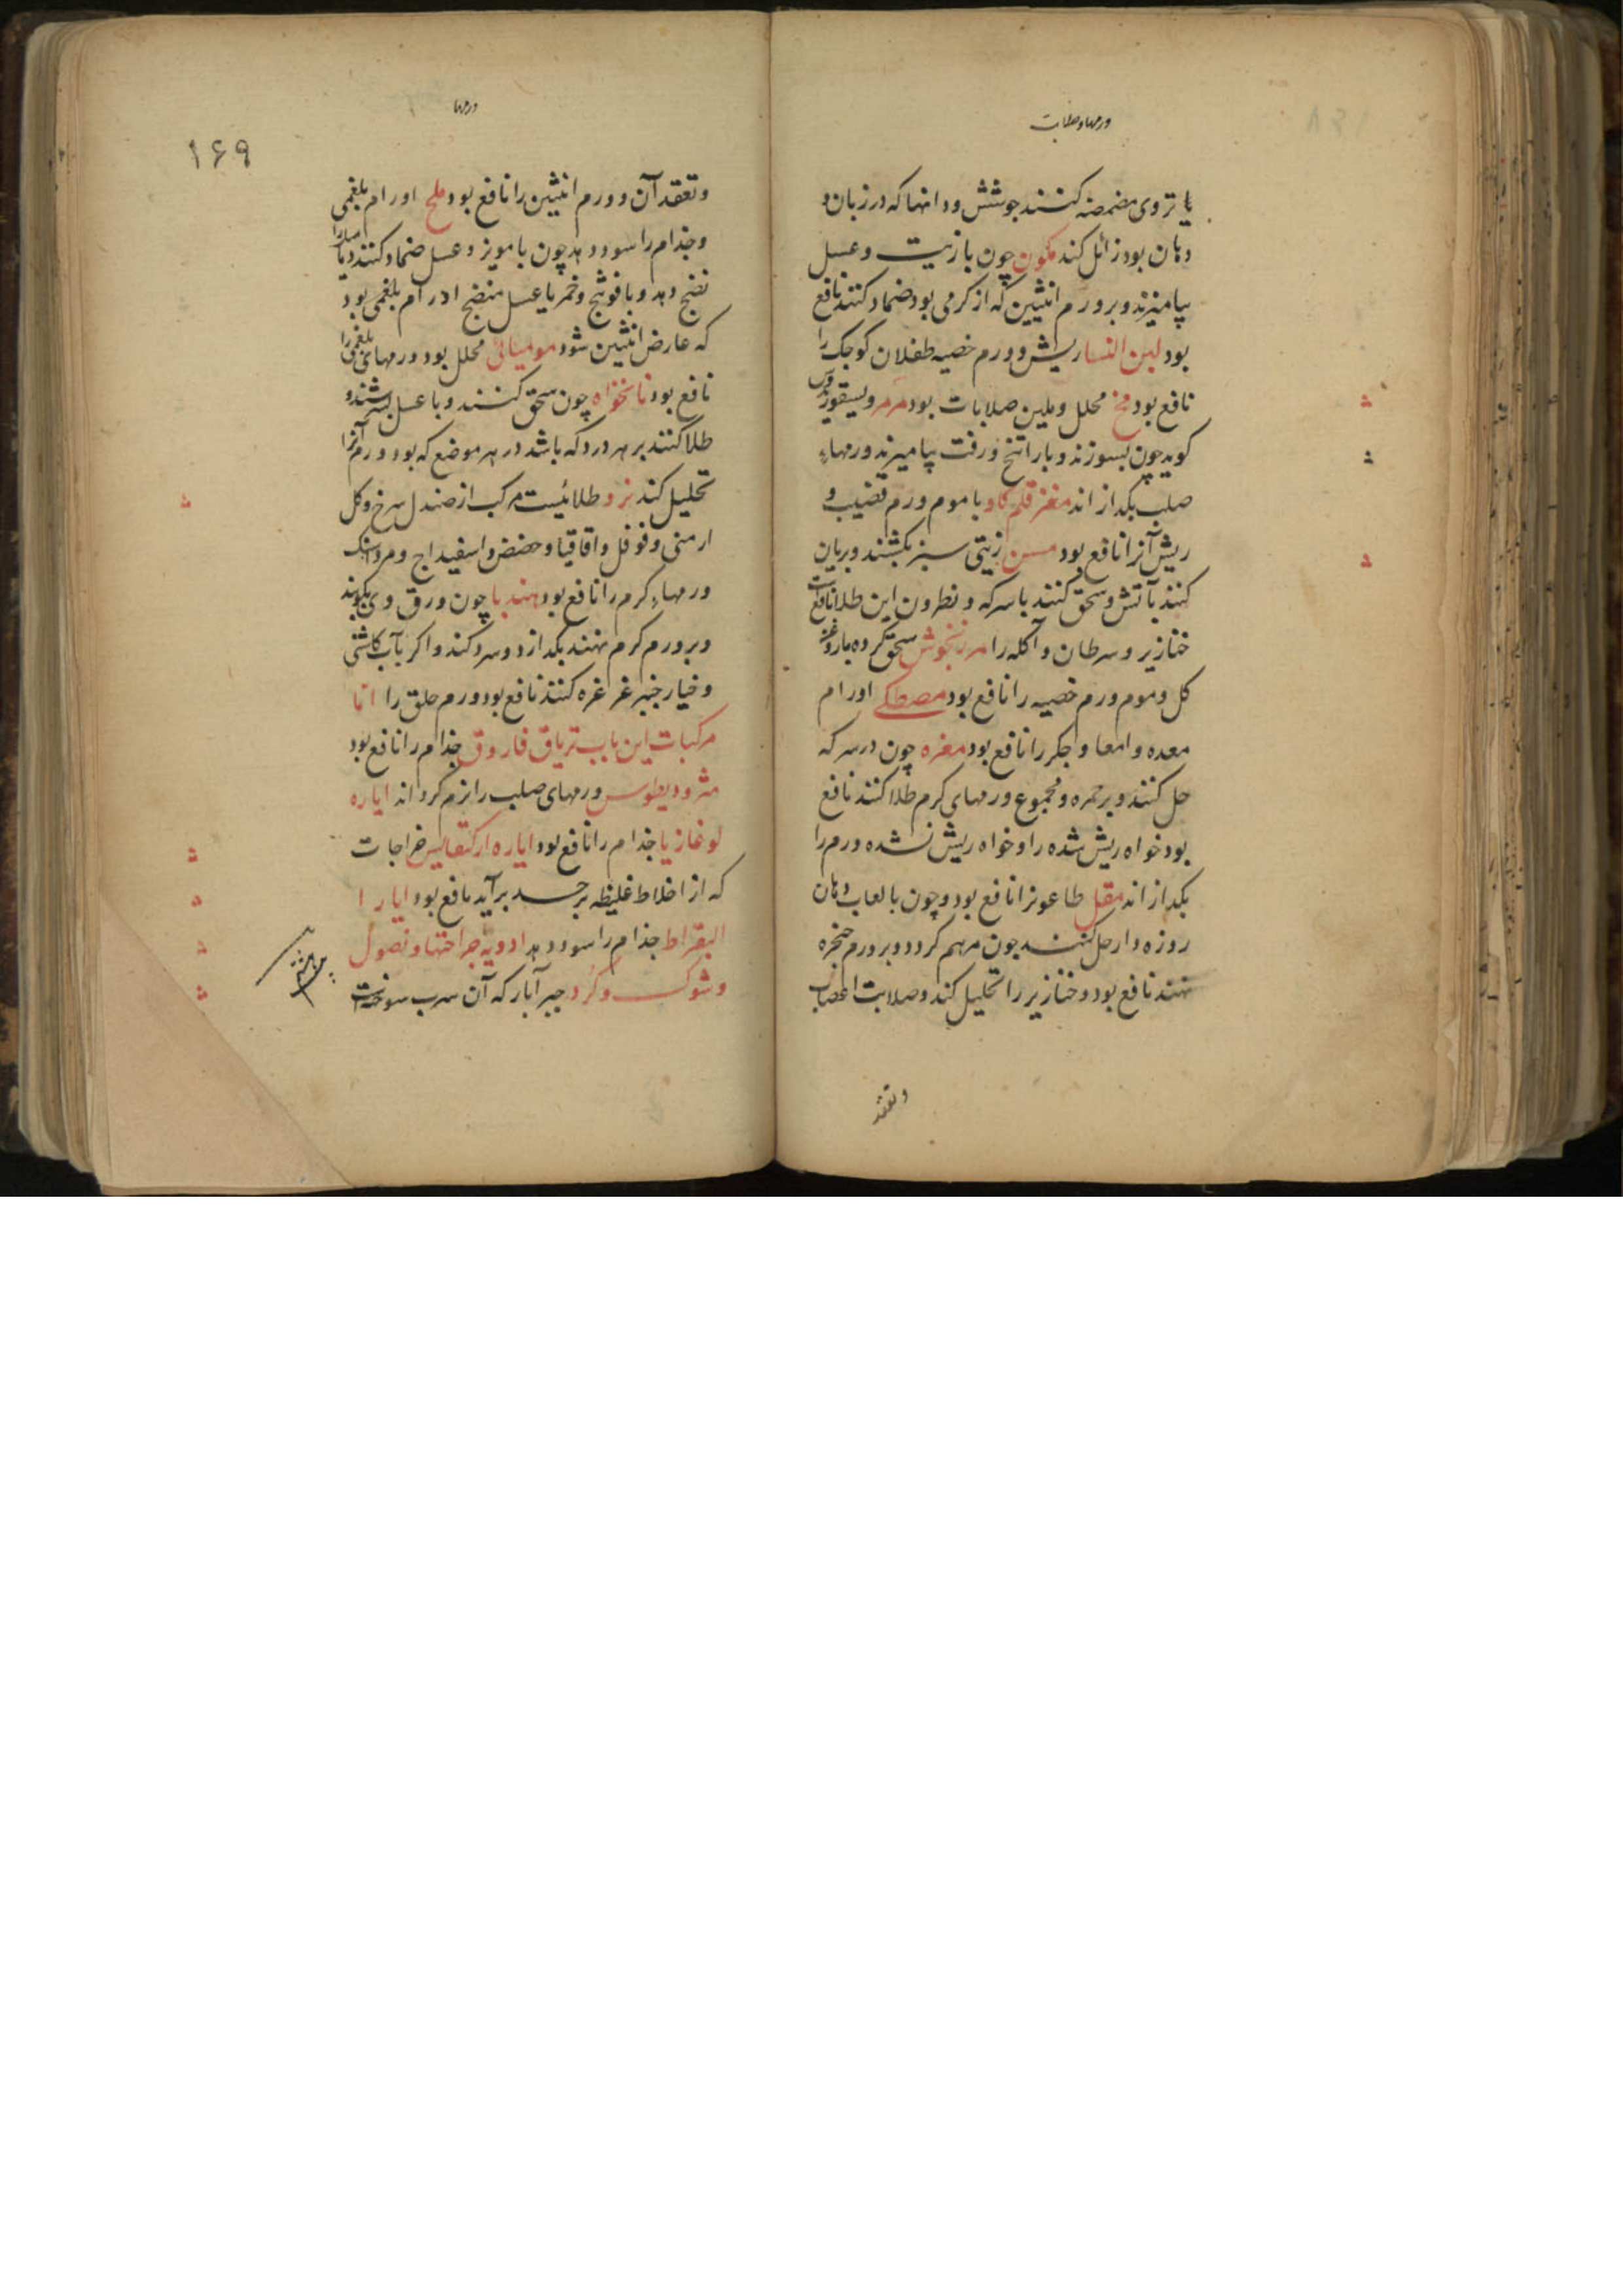 ورمها و صلابات
یا تروی مضمضه کنند جوشش ودانها که در زبان و
دهان بود زائل کند کمون چون با زیت و عسل
بیامیزند و بر ورم انثیین که از کرمی بود ضماد کنند نافع
بود لبن النسا ریش و ورم خصیه طفلان کوچک را
نافع بود مخ محلل و ملین صلابات بود مرمر
کوید چون بسوزند و با راتنج و زفت بیامیزند ورمهاء
صلب بکدازاند مغز قلم کاو با موم ورم قضیب و
ریش آنرا نافع بود مسن زیتی سبز بکشند و بریان
کنند بآتش و سحق کنند با سرکه و نطرون این طلا نافعست
خنازیر و سرطان و آکله را مرزنجوش سحق کرده با روغن
کل و موم ورم خصیه را نافع بود مصطکی اورام
معده و امعا و جکر را نافع بود مغره چون در سرکه
حل کنند و بر حمره و مجموع ورمهای کرم طلا کنند نافع
بود خواه ریش شده را و خواه ریش نشده ورم را
بکدازاند مقل طاعونرا نافع بود و چون بالعاب دهان
روزه دار حل کنند چون مرهم کردد و بر ورم حنجره
نهند نافع بود و خنازیر را تحلیل کند و صلابت اعصاب
وتعقد
ورمها
۱۶۹
وتعقد آن و ورم انثیین را نافع بود ملح اورام بلغمی
و جذام را سود دهد چون با مویز و عسل ضماد کنند
نضج دهد و با فوتنج و خمر یا عسل منضج اورام بلغمی بود
که عارض انثیین شود مومیائی محلل بود ورمهای بلغمی را
نافع بود نانخواه چون سحق کنند و با عسل بسرشند و
طلا کنند بر هر درد که باشد در هر موضع که بود و ورم آنرا
تحلیل کند نرد طلائیست مرکب از صندل سرخ و کل
ارمنی و فوفل و اقاقیا و حضض و اسفیداج و مرداسنک
ورمهاء کرم را نافع بود هندبا چون ورق وی بکوبند
و بر ورم کرم نهند بکدازد و سرد کند و اکر بآب کاشنی
و خیار چنبر غرغره کنند نافع بود ورم حلق را اما
مرکبات این باب تریاق فاروق جذام را نافع بود
مثرودیطوس ورمهای صلب را نرم کرداند ایاره
لوغازیا جذام را نافع بود ایاره ارکغانیس خراجات
که از اخلاط غلیظه بر جسد برآید نافع بود ایارا
البقراط جذام را سود دهد ادویه جراحتها و نصول
و شوک و کزد حبر آبار که آن سرب سوخته است